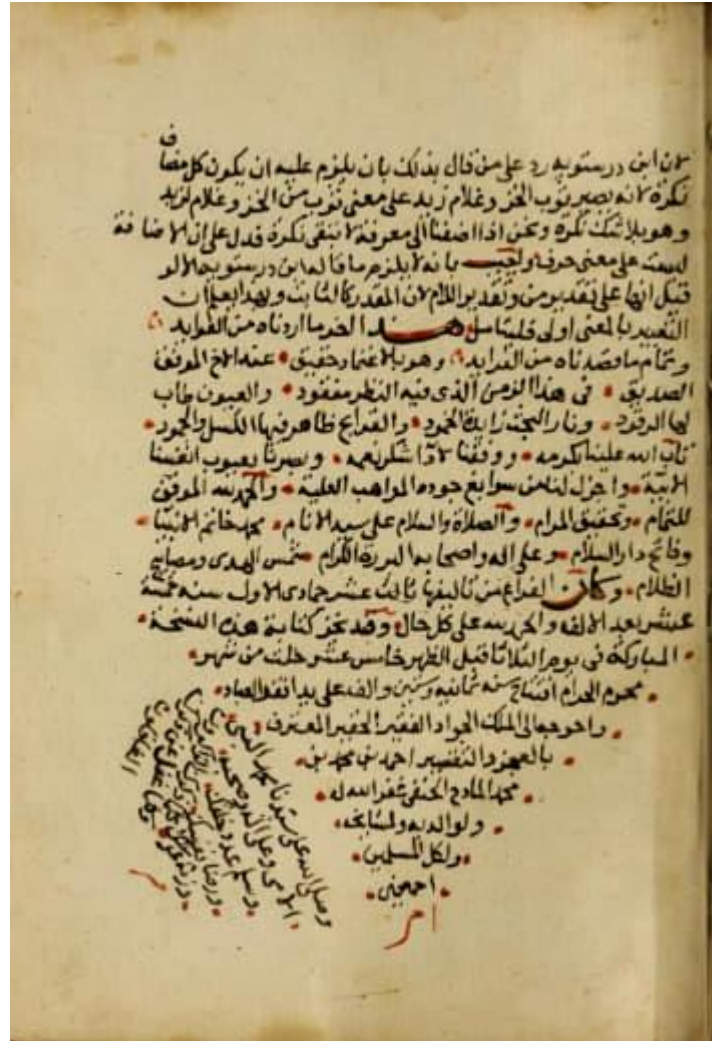 لان ابن درستويه رد على من قال بذلك بان يلزم عليه ان يكون كل مضاف
نكرة لانه يصير ثوب الخز وغلام زيد على معنى ثوب من الخز وغلام لزيد
وهو بلا شك نكرة ونحن اذا اضفنا الى معرفة لا يبقى نكرة فدل على ان الاضافة
ليست على معنى حرف واجيب بانه لا يلزم ما قاله ابن درستويه الا لو
قيل انها على تقدير من وتقدير اللام لان المقدر كالثابت وبهذا يعلم ان
التعبير بالمعنى اولى فليتامل هذا اخر ما اردناه من الفوايد
وتمام ما قصدناه من الفرايد وهو بالاعتماد حقيق عند الاخ الموفق
الصديق في هذا الزمن الذي فيه النظر مفقود والعيون طاب
لها الرقود ونار المحبة زايدة الخمود والقرايح ظاهر فيها الكسل والجمود
تاب الله علينا بكرمه ووفقنا لاداء شكر نعمه وبصرنا بعيوب انفسنا
الابية واجزل لنا من سوابغ جوده المواهب العلية والحمد لله الموفق
للتمام وتحقيق المرام والصلاة والسلام على سيد الانام محمد خاتم الانبيا
وفاتح دار السلام وعلى اله واصحابه البررة الكرام شمس الهدى ومصابيح
الظلام وكان الفراغ من تاليفها ثالث عشر جمادى الاول سنة خمسة
عشر بعد الالف والحمد لله على كل حال وقد نجز كتابة هذه النسخة
المباركة في يوم الثلاثا قبيل الظهر خامس عشر خلت من شهر
محرم الحرام افتتاح سنة ثمانية وستين والف على يد افقر العباد
واحوجهم الى الملك الجواد الفقير الحقير المعترف
بالعجز والتقصير احمد بن محمد بن
محمد المادح الحنفي غفر الله له
ولوالديه ولمشايخه
ولكل المسلمين
اجمعين
وصلى الله على سيدنا محمد النبي
الامي وعلى اله وصحبه
وسلم عدد خلقك
ورضا نفسك